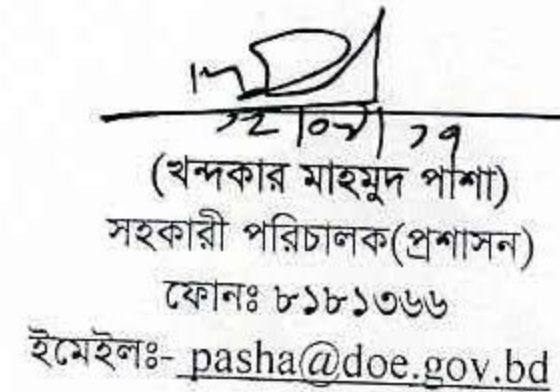 (খন্দকার মাহমুদ পাশা)
সহকারী পরিচালক(প্রশাসন)
ফোনঃ ৮১৮১৩৬৬
ইমেইলঃ- pasha@doe.gov.bd